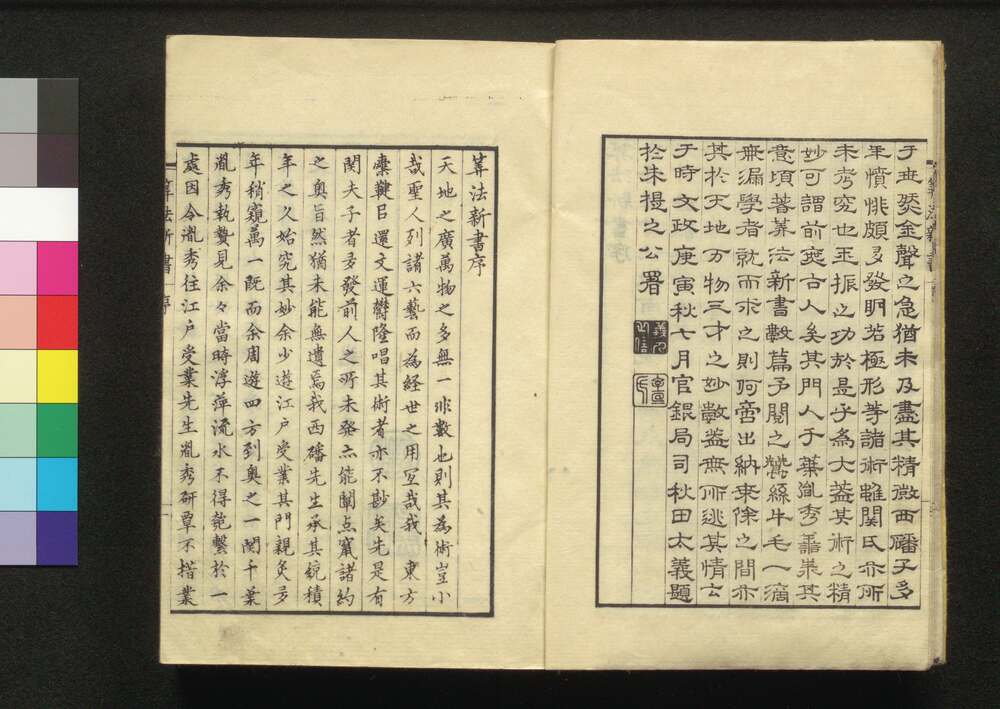 于世發金聲之急猶未及盡其精微西磻子多
年憤悱頗多發明若極形等諸術雖関氏亦所
未考究也玉振之功於是乎為大蓋其術之精
妙可謂前無古人矣其門人千葉胤秀善業其
意頃著筭法新書數篇予閱之蠶絲牛毛一滴
無漏學者就而求之則何啻出納乗除之間亦
其於天地万物三才之妙數蓋無所逃其情云
于時文政庚寅秋七月官銀局司秋田太義題
於朱提之公署
筭法新書序
天地之廣萬物之多無一非數也則其為術豈小
哉聖人列諸六藝而為経世之用宜哉我東方
櫜鞬已還文運欝隆唱其術者亦不尠矣先是有
関夫子者多發前人之所未発亦能闡点竄諸約
之奥旨然猶未能無遺焉我西磻先生承其統積
年之久始究其妙余少遊江戸受業其門親炙多
年稍窺萬一既而余周遊四方到奥之一関千葉
胤秀執贄見余々當時浮萍流水不得匏繫於一
處因令胤秀往江戸受業先生胤秀研覃不措業
算法新書 序